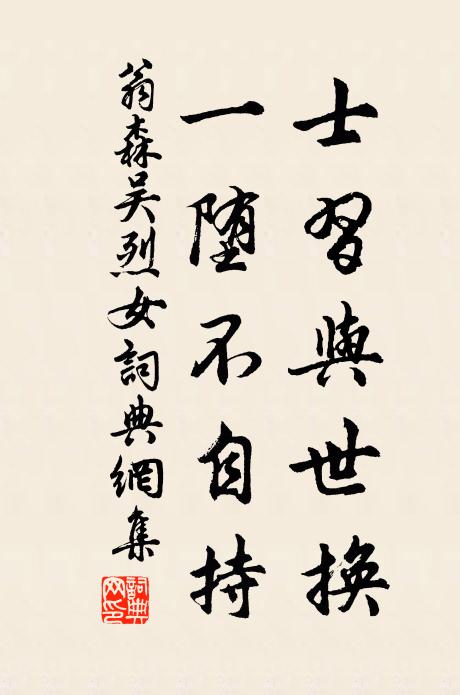 士習與世換
一堕不自持
翁森吴烈女詞典網集
詞典网印